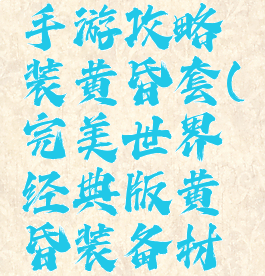 手游攻略
装黄昏套(
完美世界
经典版黄
昏装备材